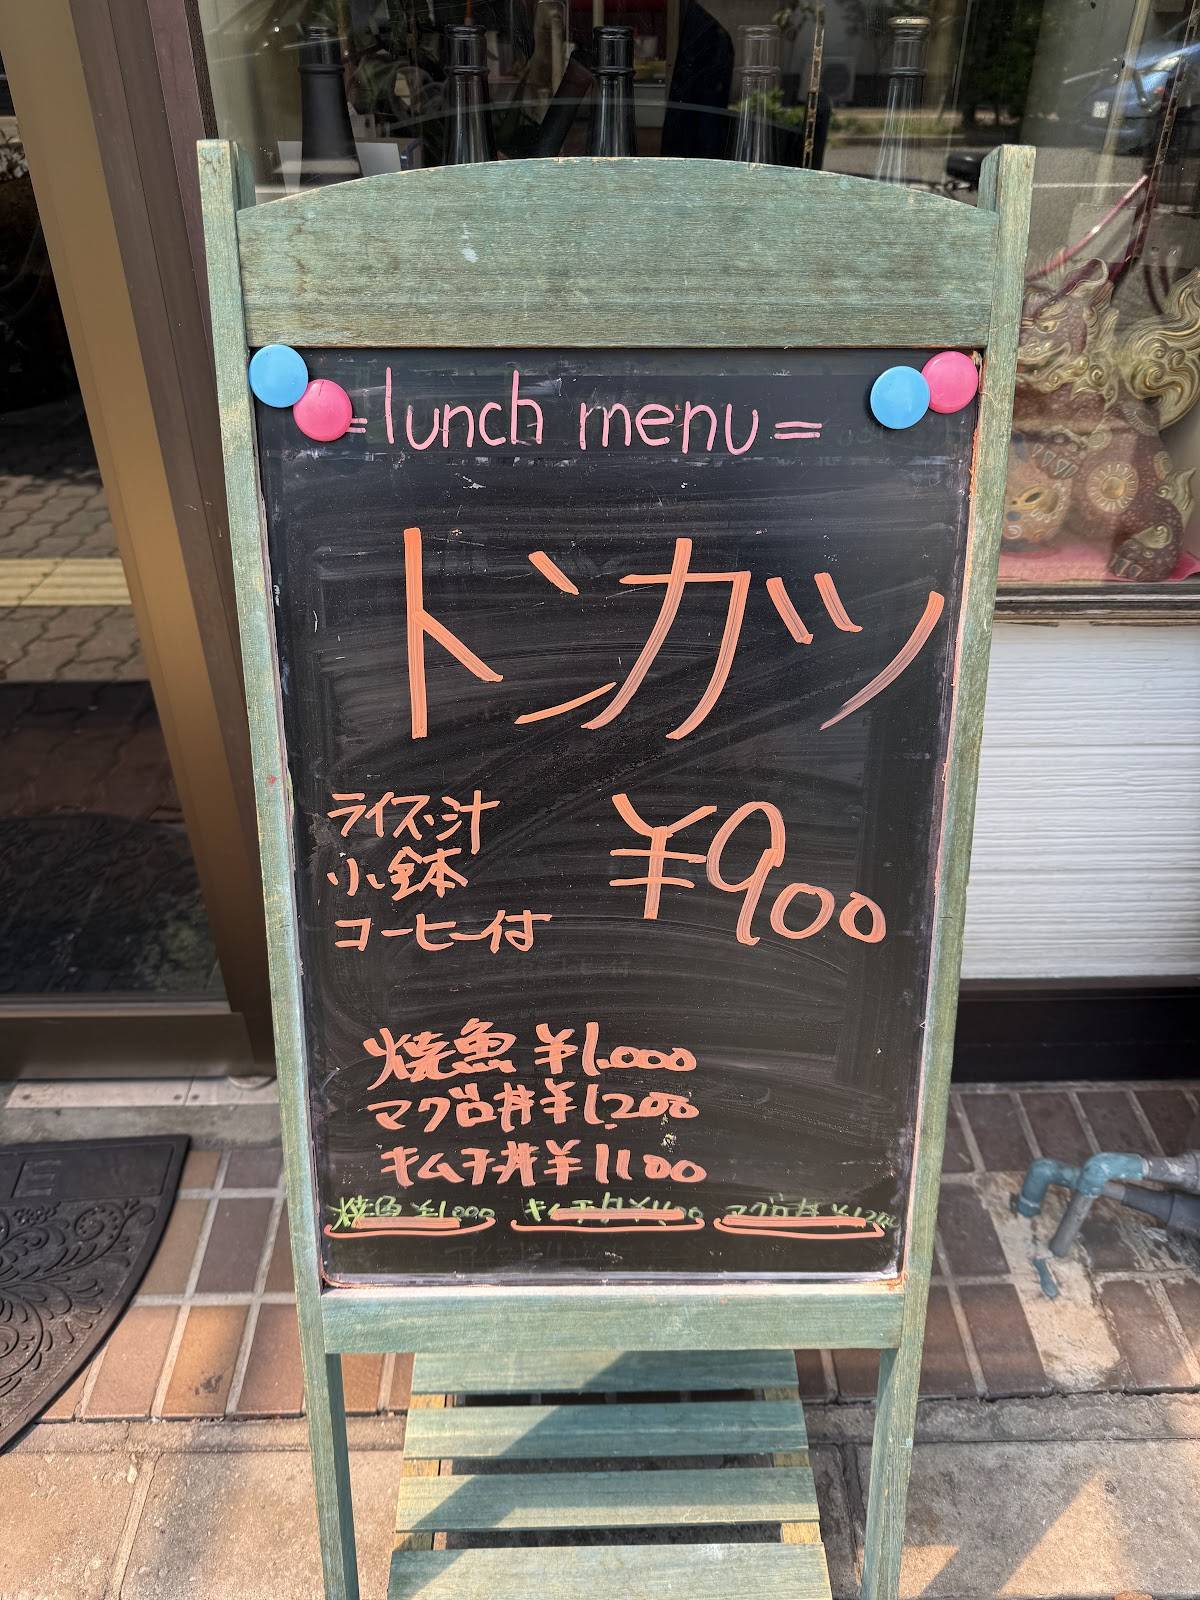 =lunch menu=
トンカツ
ライス・汁
小鉢
コーヒー付
¥900
焼魚 ¥1.000
マグロ丼¥1200
キムチ丼¥1100
焼魚 ¥1.000 キムチ丼¥1100 マグロ丼¥1200